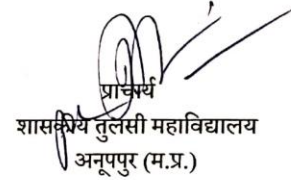 प्राचार्य
शासकीय तुलसी महाविद्यालय
अनूपपुर (म.प्र.)